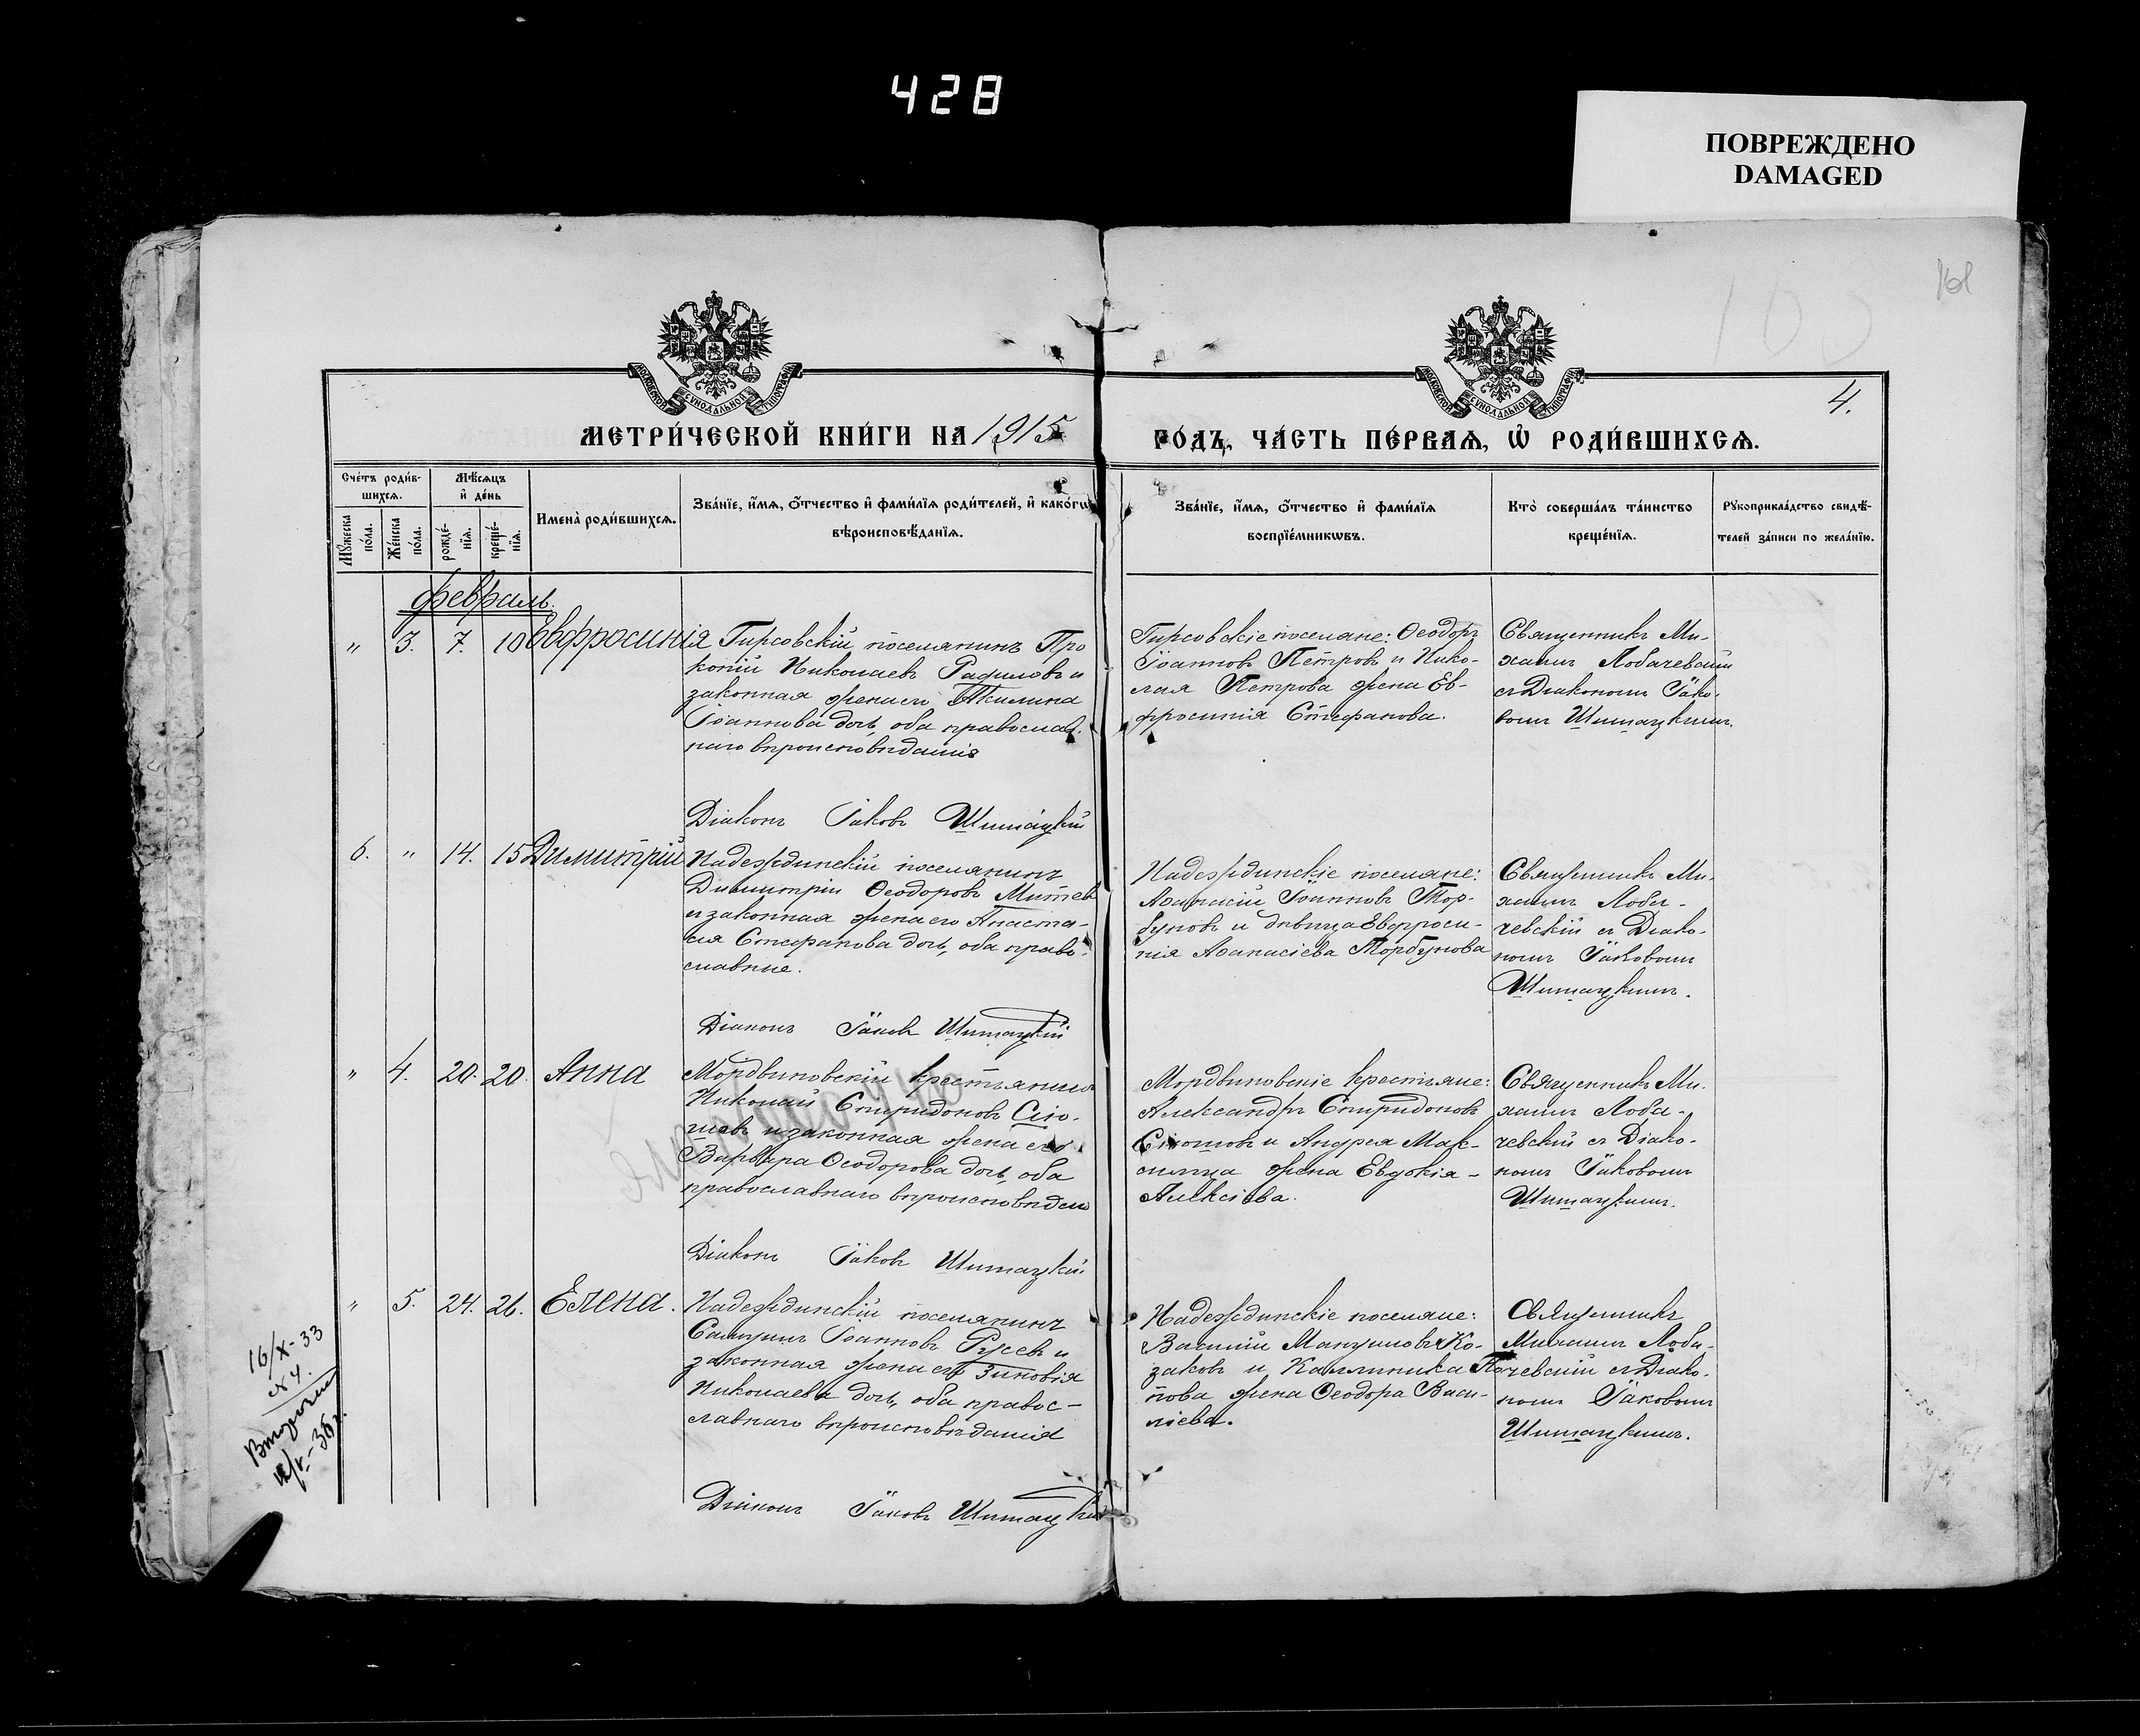 428
ПОВРЕЖДЕНО
DAMAGED
161
100
4.
МЕТРИ́ЧЕСКОЙ КНИ́ГИ НА 1915
ГО́ДЪ, ЧА́СТЬ ПЕ́РВАЯ, Ѿ РОДИ́ВШИХСЯ.
Сче́тъ роди́в-
шихся.
Мѣ́сяцъ
и҆ де́нь
Мꙋ́жеска по́ла.
Же́нска по́ла.
рожде́-
нїя.
креще́-
нїя.
Имена̀ роди́вшихся.
Зва́нїе, и҆́мя, ѻ҆́тчество и҆ фами́лїя роди́телей, и҆ како́гѡ
вѣроисповѣ́данїя.
Зва́нїе, и҆́мя, ѻ҆́тчество и҆ фами́лїя
воспрїе́мникѡвъ.
Кто̀ соверша́лъ та́инство
креще́нїя.
Рꙋкоприкла́дство свидѣ́-
телей за́писи по жела́нїю.
Февраль.
" 3. 7. 10 Евфросинія
Гирсовскій поселянинъ Про
копій Николаевъ Радиловъ и
законная жена его Акилина
Іоаннова дочь, оба православ-
наго вѣроисповѣданія
Діаконъ Іаковъ Шишацкій
Гирсовскіе поселяне: Ѳеодоръ
Іоанновъ Петровъ и Нико-
лая Петрова жена Ев-
фросинія Стефанова.
Священникъ Ми-
хаилъ Лобачевскій
съ Діакономъ Іако-
вомъ Шишацкимъ.
6. " 14. 15 Димитрій
Надеждинскій поселянинъ
Димитрій Ѳеодоровъ Митевъ
и законная жена его Анаста-
сія Стефанова дочь, оба право-
славные.
Діаконъ Іаковъ Шишацкій
Надеждинскіе поселяне:
Аѳанасій Іоанновъ Тор-
буновъ и дѣвица Евфроси-
нія Аѳанасіева Торбунова
Священникъ Ми-
хаилъ Лоба-
чевскій съ Діако-
номъ Іаковомъ
Шишацкимъ.
" 4. 20. 20. Анна
Мордвиновскій крестьянинъ
Николай Спиридоновъ Сію-
шовъ и законная жена его
Варвара Ѳеодорова дочь, оба
православнаго вѣроисповѣдан
Діаконъ Іаковъ Шишацкій
Мордвиновскіе крестьяне:
Александръ Спиридоновъ
Сіюшовъ и Андрея Мак-
симца жена Евдокія
Алексіева.
Священникъ Ми-
хаилъ Лоба-
чевскій съ Діако-
номъ Іаковомъ
Шишацкимъ.
" 5. 24. 26. Елена.
Надеждинскій поселянинъ
Самуилъ Іоанновъ Русевъ и
законная жена его Зиновія
Николаева дочь, оба правос-
лавнаго вѣроисповѣданія
Діаконъ Іаковъ Шишацкій
Надеждинскіе поселяне:
Василій Мануиловъ Ко-
заковъ и Каллиника По-
пова жена Ѳеодора Васи-
ліева.
Священникъ
Михаилъ Лоба-
чевскій съ Діако-
номъ Іаковомъ
Шишацкимъ.
16/X-33
Вторичн
МОСКОВСКОЙ СѴНОДАЛЬНОЙ ТИПОГРАФІИ
МОСКОВСКОЙ СѴНОДАЛЬНОЙ ТИПОГРАФІИ